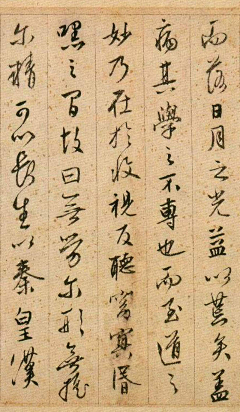 而落日月之光益以荒矣蓋
病其學之不專也而至道之
妙乃在於收視反聽窈冥昏
嘿之間故曰無勞爾形無搖
爾精可以長生以秦皇漢